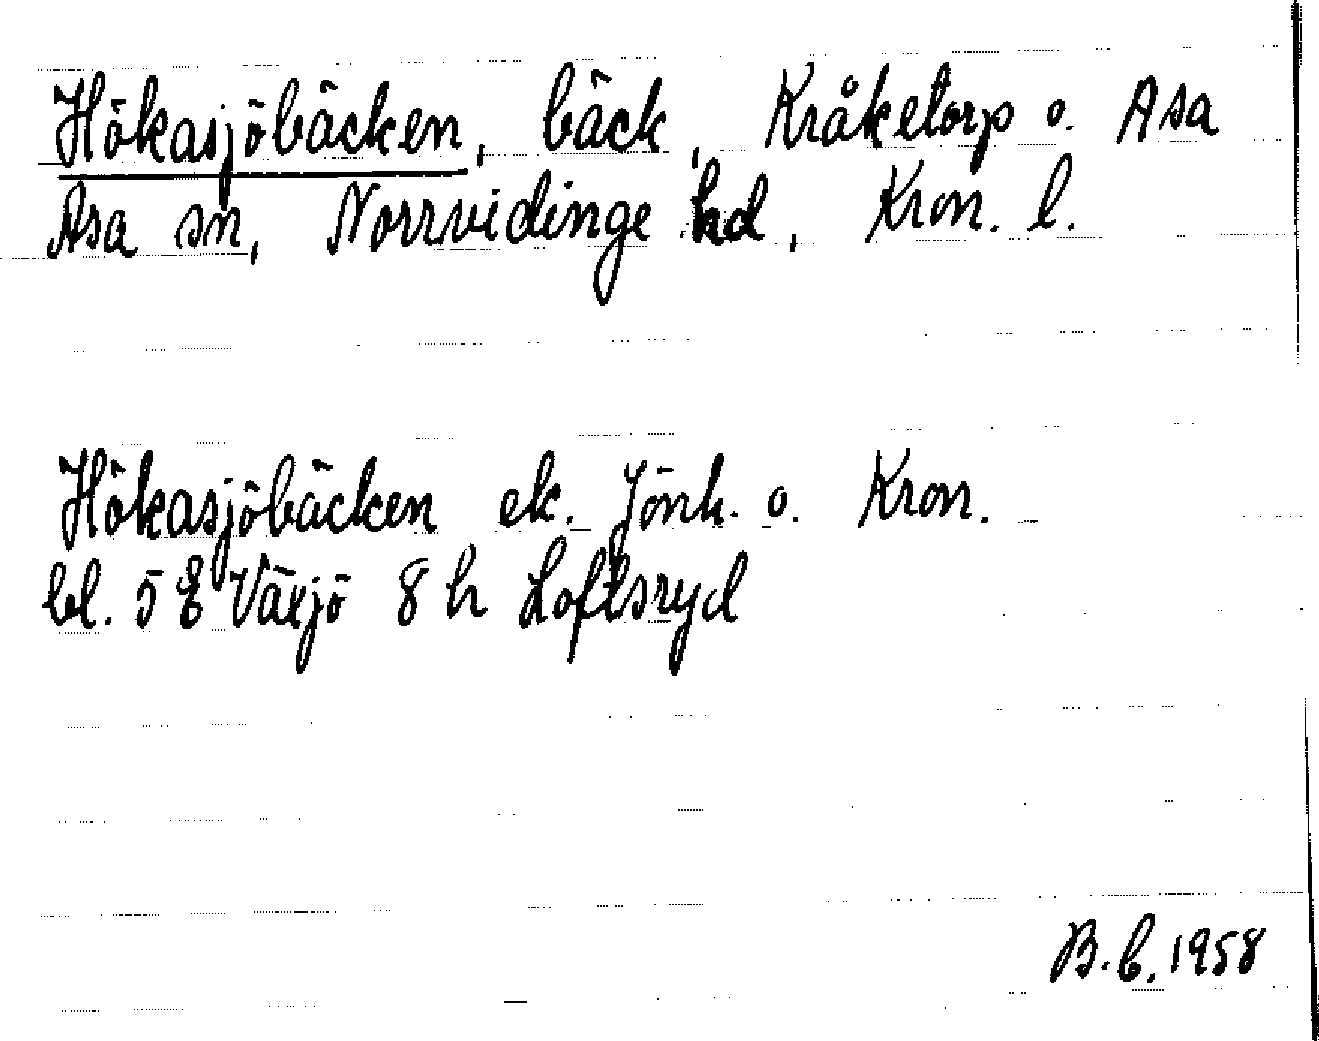 Hökasjöbäcken, bäck, Kråketorp o. Asa
Asa sn, Norrvidinge hd, Kron. l.
Hökasjöbäcken ek. Jönk. o. Kron.
bl. 5 E Växjö 8 h Loftsryd
B.b. 1958